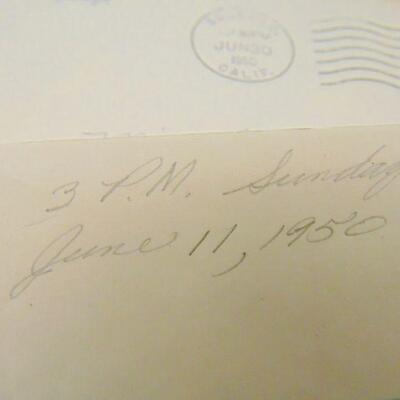 JUN 30
CALIF.
3 P.M. Sunday
June 11, 1950